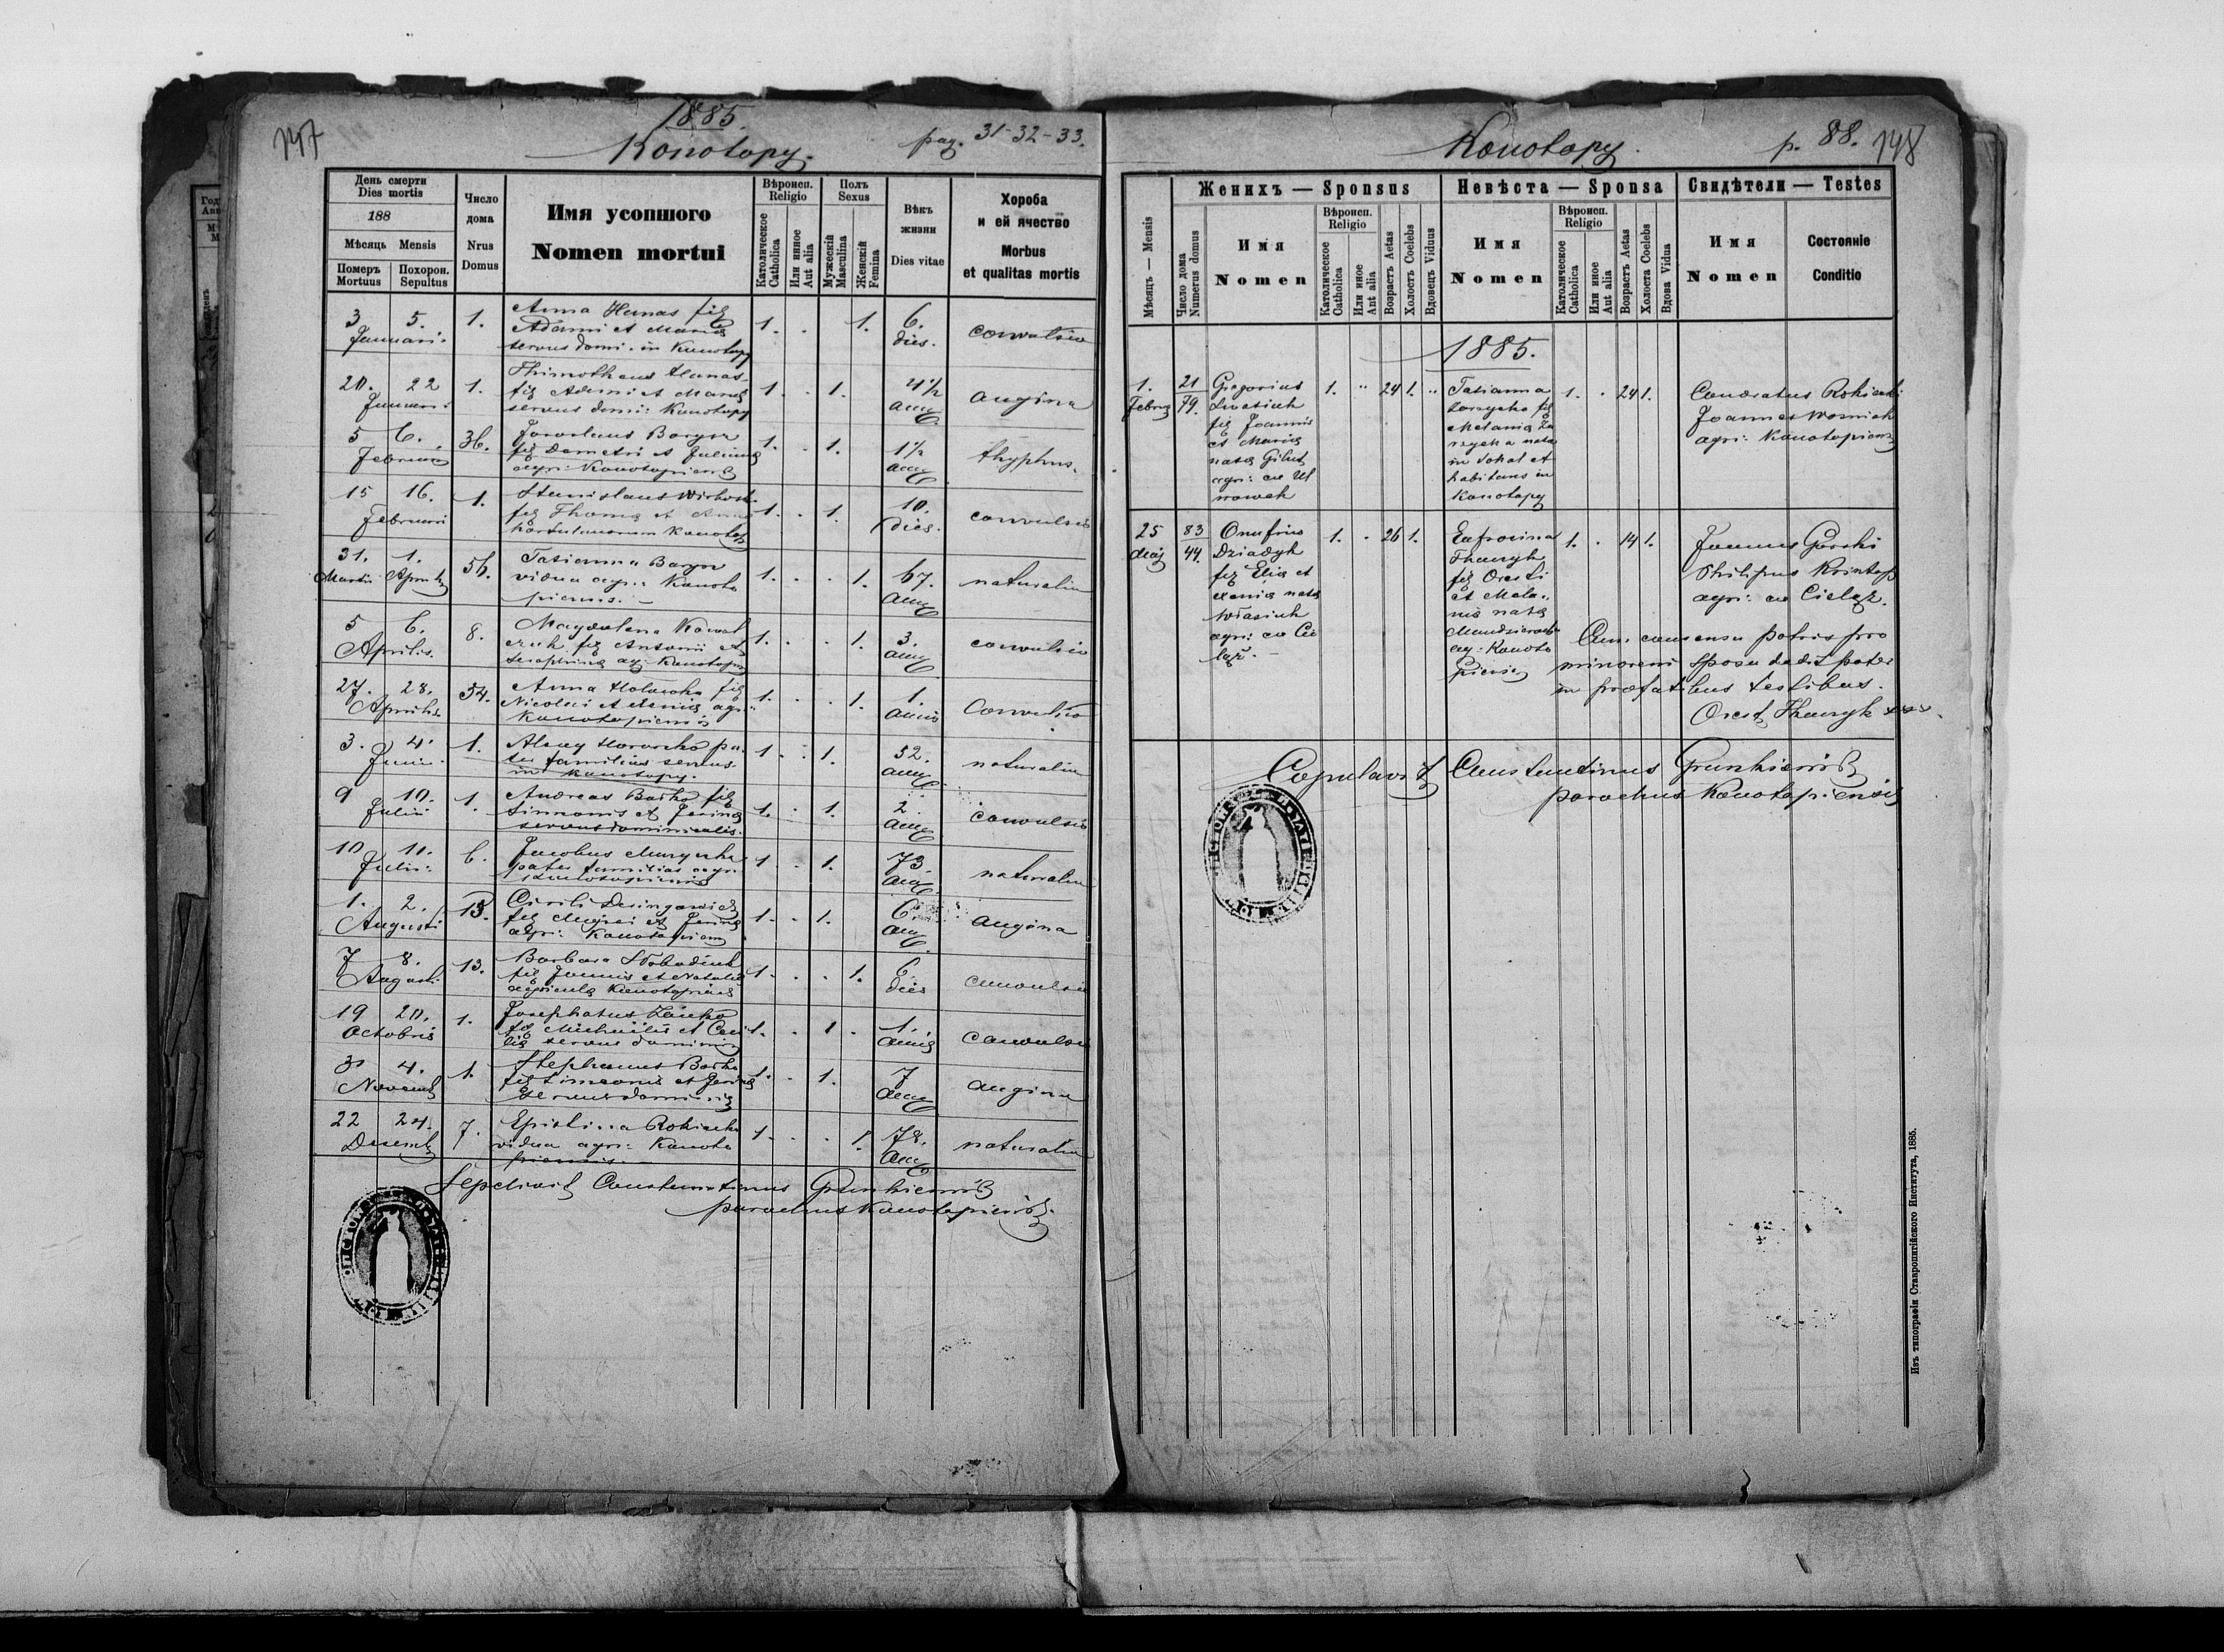 147
1885.
Konotopy.
pag. 31-32-33.
День смерти
Dies mortis
188
Мѣсяць Mensis
Померъ Похорон.
Mortuus Sepultus
Число
дома
Nrus
Domus
Имя усопшого
Nomen mortui
Вѣроисп.
Religio
Католическое
Catholica
Или инное
Aut alia
Полъ
Sexus
Мужескій
Masculina
Женскій
Femina
Вѣкъ
жизни
Dies vitae
Хороба
и ей ячество
Morbus
et qualitas mortis
3 5. Januari. 1. Anna Hanas fil
Adami et Maria
servus domi. in Konotopy
1. . 1. 6. dies. convulsio
20. 22 Januari 1. Thimotheus Hanas
fil Adami et Maria
servus domi: Konotopy
1. . 1. 4½ ann angina
5 6. Februari 36. Jaroslaus Baryn
fil Demetri et Julianna
agri: Konotopiens
1. . 1. 1½ ann thyphus.
15 16. Februari 1. Stanislaus
fil Thoma et Anna
hortulanorum Konotop
1. . 1. 10. dies. convulsio
31. 1. Martii Aprilis 56. Tatianna Baryn
vidua agri: Konoto
piensis.
1. . . 1. 67. ann naturalis
5 6. Aprilis. 8. Magdalena Kowal
czuk fil Antonii et
Seraphina ag: Konotopy
1. . . 1. 3. ann convulsio
27. 28. Aprilis 54. Anna fil
Nicolai et Xenia agri:
Konotopiensis
1. . . 1. 1. annus Convulsio
3. 4. Junii. 1. Alexy pa
ter familias servus
in Konotopy.
1. . 1. 52. ann naturalis
9 10. Julii 1. Andreas Barko fil
Simeonis et Jerina
servus dominicalis.
1. . 1. 2. ann convulsio
10 11. Julii: 6. Jacobus
pater familias agri
Konotopiensis
1. . 1. 73. ann naturalis
1. 2. Augusti 15. Cirili
fil et Jerina
agri: Konotopiens
1. . 1. 6. ann angina
7 8. Augusti 13. Barbara Slobodiuk
fil Joannis et Natalia
agricola Konotopiens
1. . . 1. 6. dies convulsio
19 20. Octobris 1. Josephatus
fil Michaelis et Ceci
lia servus domini
1. . 1. 1. annus convulsio
3 4. Novemb 1. Stephanus Barko
fil Simeonis et Jerina
servus domini
1. . 1. 7 ann angina
22 24. Decemb 7. Rokicka
vidua agri: Konoto
piensis.
1. . . 1. 78. ann naturalis
Sepelivit Constantinus
parochus Konotopiensis.
Konotopy.
p. 88. 148
Мѣсяць — Mensis
Число дома
Numerus domus
Женихъ — Sponsus
Имя
Nomen
Вѣроисп.
Religio
Католическое
Catholica
Или иное
Ant alia
Возрастъ Aetas
Холостъ Coelebs
Вдовецъ Viduus
Невѣста — Sponsa
Имя
Nomen
Вѣроисп.
Religio
Католическое
Catholica
Или инное
Aut alia
Возрастъ Aetas
Холоста Coelebs
Вдова Vidua
Свидѣтели — Testes
Имя
Nomen
Состояніе
Conditio
1885.
1. Februa 21 79. Gregorius
Iwasiuk
fil Joannis
et Maria
nata Gilut
agri: ex Ul
wowek
1. " 24 1. "
Tatianna
fil
Melania
nata
in Sokal et
habitans in
Konotopy
1. . 24 1.
Condratus Rokicki
Joannes Wozniak
agri: Konotopiens
25 Maj 83 44. Onufrius
Dziadyk
fil Elia et
Xenia nata
Wlasiuk
agri: ex Cie
ląż.
1. . 26 1.
Eufrosina
fil Oresti
et Mela
nia nata
ag: Konoto
piensis
1. . 14 1.
Joannes Gorski
Philipus
agri: ex Cieląż.
Cum consensu patris pro
minoreni sposa dedit pater
in praefatibus testibus.
Orest
Copulavit Constantinus
parochus Konotopiensis
Изъ типографіи Ставропигійского Института, 1885.